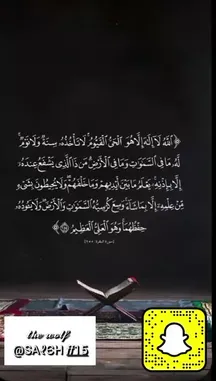 ﴿ اللَّهُ لَا إِلَٰهَ إِلَّا هُوَ الْحَيُّ الْقَيُّومُ لَا تَأْخُذُهُ سِنَةٌ وَلَا نَوْمٌ
لَّهُ مَا فِي السَّمَاوَاتِ وَمَا فِي الْأَرْضِ مَن ذَا الَّذِي يَشْفَعُ عِندَهُ
إِلَّا بِإِذْنِهِ يَعْلَمُ مَا بَيْنَ أَيْدِيهِمْ وَمَا خَلْفَهُمْ وَلَا يُحِيطُونَ بِشَيْءٍ
مِّنْ عِلْمِهِ إِلَّا بِمَا شَاءَ وَسِعَ كُرْسِيُّهُ السَّمَاوَاتِ وَالْأَرْضَ وَلَا يَئُودُهُ
حِفْظُهُمَا وَهُوَ الْعَلِيُّ الْعَظِيمُ ﴾
the wolf